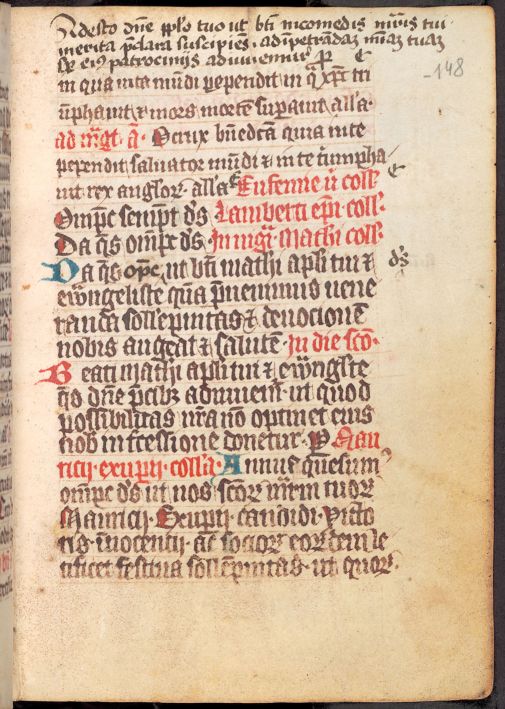 Adesto dne pplo tuo ut bti nicomedis mris tui
merita pclara suscipiens, ad impetrandam miam tuam
sp eius patrociniis adiuvemur p
148
in qua vita mudi pependit in q xpc tri
uphavit & mors morte supavit alla
ad mgt a O crux bndcta quia in te
pependit salvator mudi & in te triumpha
vit rex anglor alla Eufemie v coll
Omps sempt ds Lamberti epi coll
Da qs omps ds In vigi Mathi coll
Da qs ops ut bti mathi apli tui & ds
ewngeliste qua pvenimus vene
randa sollepnitas & devocione
nobis augeat & salute In die sco
Beati mathi apli tui & ewngliste
qs dne pcibz adiuvemr ut quod
possibilitas nra no optinet eius
nob intcessione donetur P Mau
ritii exuperii colla Annue quesum
omps ds ut nos scor mrm tuor
Mauricii Exuperii candidi Victo
ris inocentii ac socior eordem le
tificet festiva sollepnitas ut quor